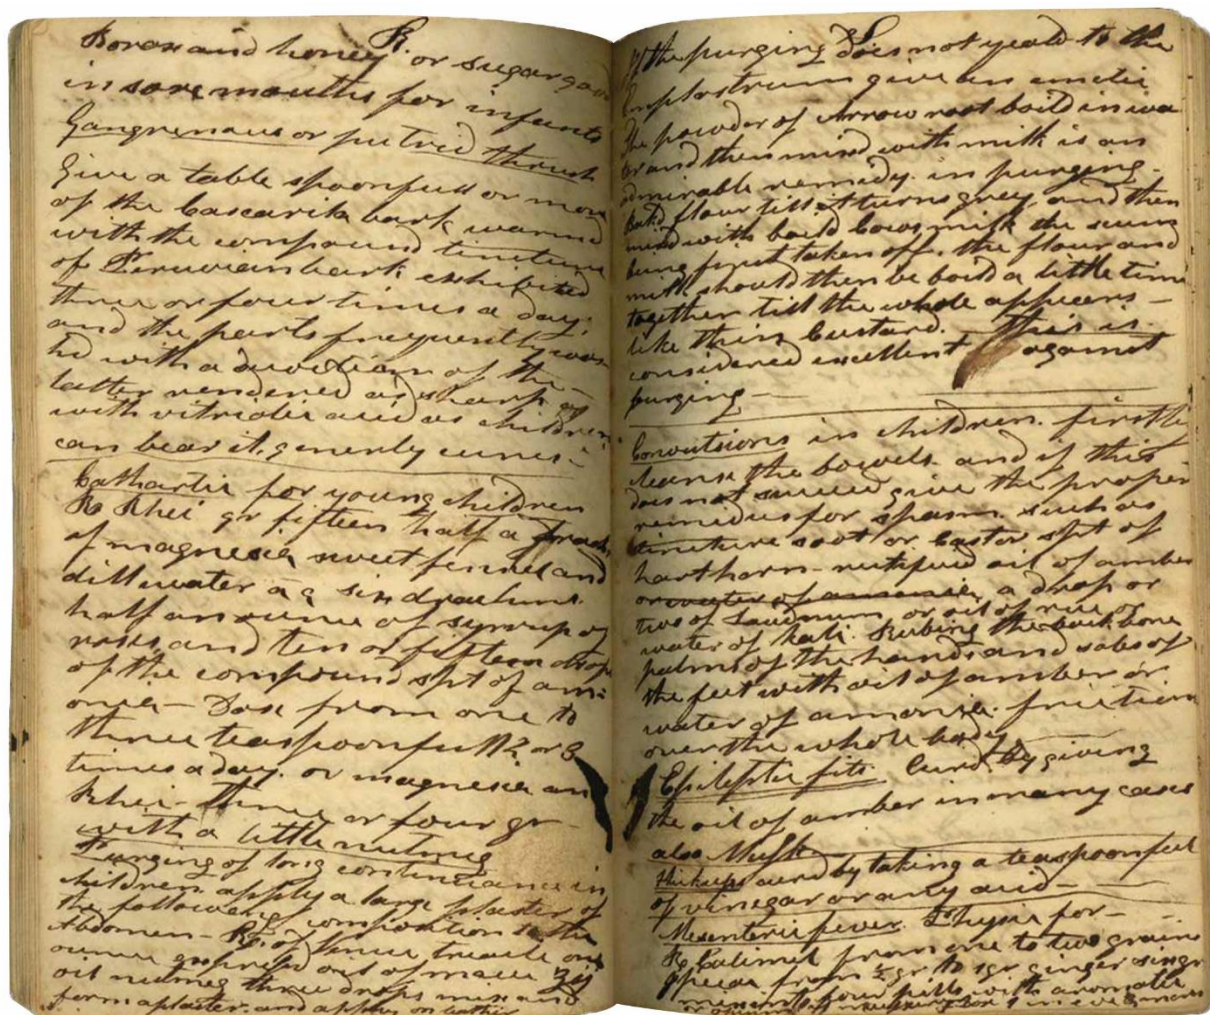 R.
Borax and honey or sugar good
in sore mouths for infants
Gangrenous or putrid thrush
Give a table spoonfull or more
of the Cascarila bark warmd
with the compound tincture
of Peruvian bark exhibited
three or four times a day;
and the parts frequently wash
hd with a decoction of the
latter rendered as sharp
with vitriolic acid as children
can bear it, generly cures
Cathartic for young children
Rx Rhei gr fifteen half a drach
of magnesia sweet fennel and
dill water aa six drachms
half an ounce of syrrup of
roses, and ten or fifteen drops
of the compound spt of am=
onia - Dose from one to
three teaspoonfull 2 or 3
times a day. or magnesia an
Rhei - three or four gr
with a little nutmeg
Purging of long continuance in
children apply a large plaster of
the following composition to the
Abdomen - Rx of Venice treacle one
ounce expresed oil of mace
oil nutmeg three drops mix and
form a plaster and apply on leather
If the purging Does not yeald to the
Emplastrum give an emetic
The powder of Arrow root boild in wa
er and then mixd with milk is an
admirable remedy in purging.
Boild flour till it turns grey and then
mixd with boild Cows milk the scum
being first taken off, the flour and
milk should then be boild a little time
together till the whole appears -
like thin Custard. This is
considered excellent against
purging -
Convulsions in children. firstly
cleanse the bowels. and if this
does not succeed give the proper
remedies for spasm. such as
tincture soot or Castor spt of
hartshorn - rectified oil of amber
or water of amonia, a drop or
two of Laudnum or oil of rue or
water of kali. Rubing the back bone
palms of the hands and soles of
the feet with oil of amber or
water of amonia. friction
over the whole body
Epileptic fits. Curd by giving
the oil of amber in many cases
also Musk
Hickups curd by taking a teaspoonful
of vinegar or any acid -
Mesenteric fever. Physic for -
Rx Calimel from one to two grains
from ½ gr to 1 gr ginger six gr
mix into four pills with aromatic